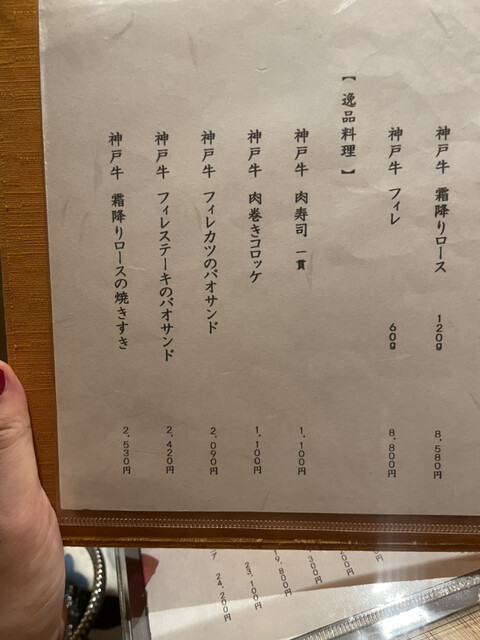 神戸牛 霜降りロース 120g 8,580円
神戸牛 フィレ 60g 8,800円
【逸品料理】
神戸牛 肉寿司 一貫 1,100円
神戸牛 肉巻きコロッケ 1,100円
神戸牛 フィレカツのバオサンド 2,090円
神戸牛 フィレステーキのバオサンド 2,420円
神戸牛 霜降りロースの焼きすき 2,530円
円
200円
300円
19,800円
23,100円
24,200円